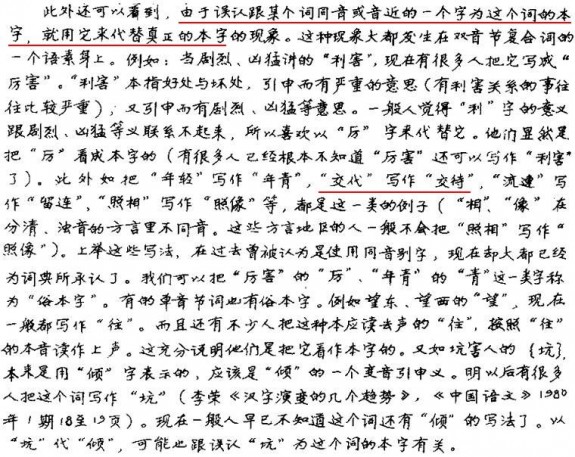 此外还可以看到，由于误认跟某个词同音或音近的一个字为这个词的本
字，就用它来代替真正的本字的现象。这种现象大都发生在双音节复合词的
一个语素身上。例如：当剧烈、凶猛讲的“利害”，现在有很多人把它写成“
厉害”。“利害”本指好处与坏处，引申而有严重的意思（有利害关系的事往
往比较严重），又引申而有剧烈、凶猛等意思。一般人觉得“利”字的意义
跟剧烈、凶猛等义联系不起来，所以喜欢以“厉”字来代替它。他们显然是
把“厉”看成本字的（有很多人已经根本不知道“厉害”还可以写作“利害”
了）。此外如把“年轻”写作“年青”，“交代”写作“交待”，“流连”写
作“留连”，“照相”写作“照像”等，都是这一类的例子（“相”、“像”在
分清、浊音的方言里不同音。这些方言地区的人一般不会把“照相”写作“
照像”）。上举这些写法，在过去曾被认为是使用同音别字，现在却大都已经
为词典所承认了。我们可以把“厉害”的“厉”、“年青”的“青”这一类字称
为“俗本字”。有的单音节词也有俗本字。例如望东、望西的“望”，现在
一般都写作“往”。而且还有不少人把这种本应读去声的“往”，按照“往”
的本音读作上声。这充分说明他们是把它看作本字的。又如坑害人的｛坑｝，
本来是用“倾”字表示的，应该是“倾”的一个变音引申义。明以后有很多
人把这个词写作“坑”（李荣《汉字演变的几个趋势》，《中国语文》1980
年1期18至19页）。现在一般人早已不知道这个词还有“倾”的写法了。以
“坑”代“倾”，可能也跟误认“坑”为这个词的本字有关。